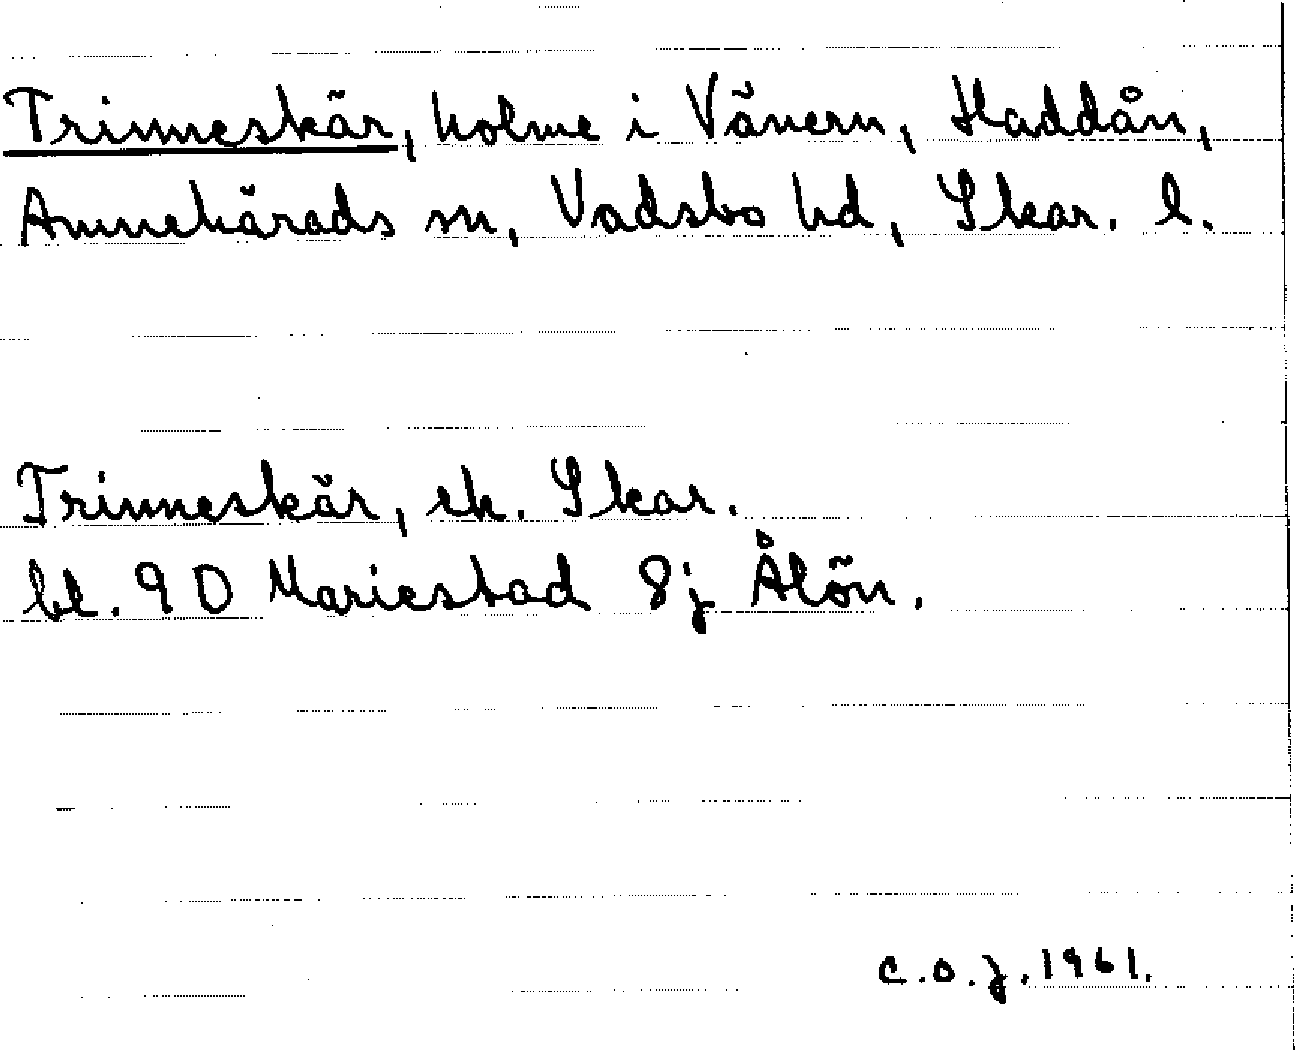 Trinneskär, holme i Vänern, Haddån,
Amnehärads sn, Vadsbo hd, Skar. l.
Trinneskär, ek. Skar.
bl. 9 D Mariestad 8j Ålön.
C.O.J. 1961.